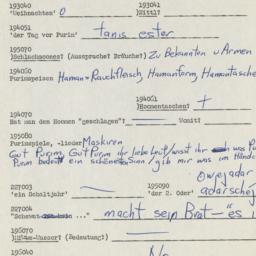 193040 193041
'Weihnachten' O )Kittl?
194051
'der Tag vor Purim' tanis ester
195070
)Schlachmones? (Aussprache? Bräuche?) Zu Bekannten u Armen
194060
Purimspeisen Haman = Rauchfleisch, Hamanform, Hamantasche
194061
)Homentaschen? +
194070
Hat man den Homen "geschlagen"? Womit?
195080
Purimspiele, -lieder Maskiren
Gut Purim, Gut Purim ihr liebe Leut / wost ihr was
Purim bedeut ein schönes Sinn / gib mir was im Hände
227003 195090
'ein Schaltjahr' 'der 2. Adar' adar
227004
"Schewat ..." macht sein Brot - es
195070
)Mittn-Wasser? (Bedeutung?)
195040
No